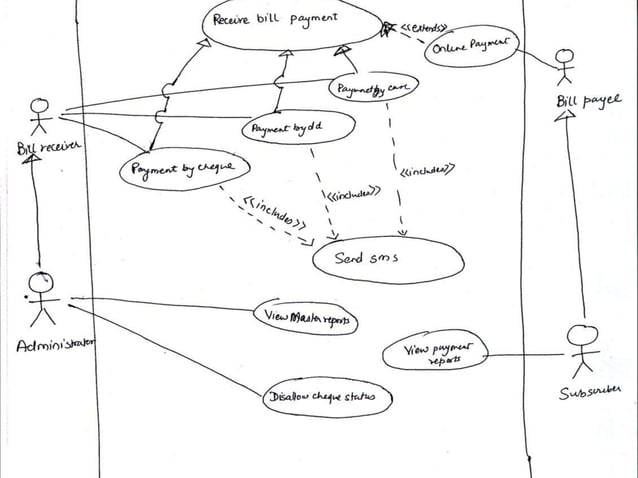 Receive bill payment
<<extends>>
Online Payment
Bill payee
Paymnet by
Bill receiver
Payment by dd
Payment by cheque
<<includes>>
<<includes>>
<<includes>>
Send sms
Administrator
View Master reports
View payment
reports
Subscriber
Disallow cheque status